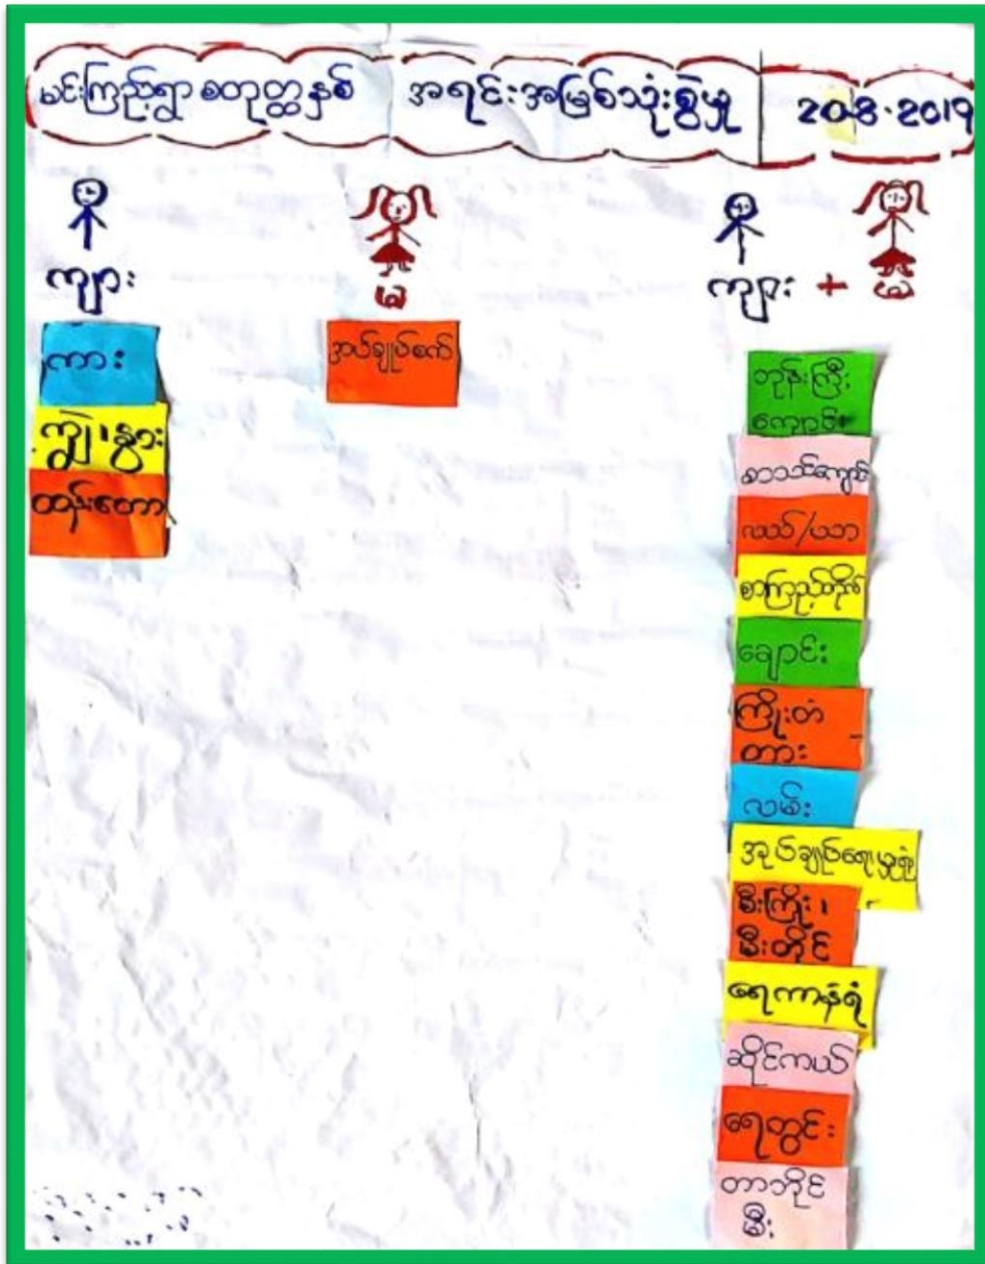 မင်းကြည့်ရွာ စတုတ္ထနှစ် အရင်းအမြစ်သုံးစွဲမှု 20-8-2019
ကျား
မ
ကျား + မ
ကား
ကျွဲ၊နွား
ထန်းတော
အပ်ချုပ်စက်
ဘုန်းကြီး
ကျောင်း
စာသင်ကျောင်း
လယ်/ယာ
စာကြည့်တိုက်
ချောင်း
ကြိုးတံ
တား
လမ်း
အုပ်ချုပ်ရေးမှူးရုံး
မီးကြိုး၊
မီးတိုင်
ရေကာနံရံ
ဆိုင်ကယ်
ရေတွင်း
တာဘိုင်
မီး